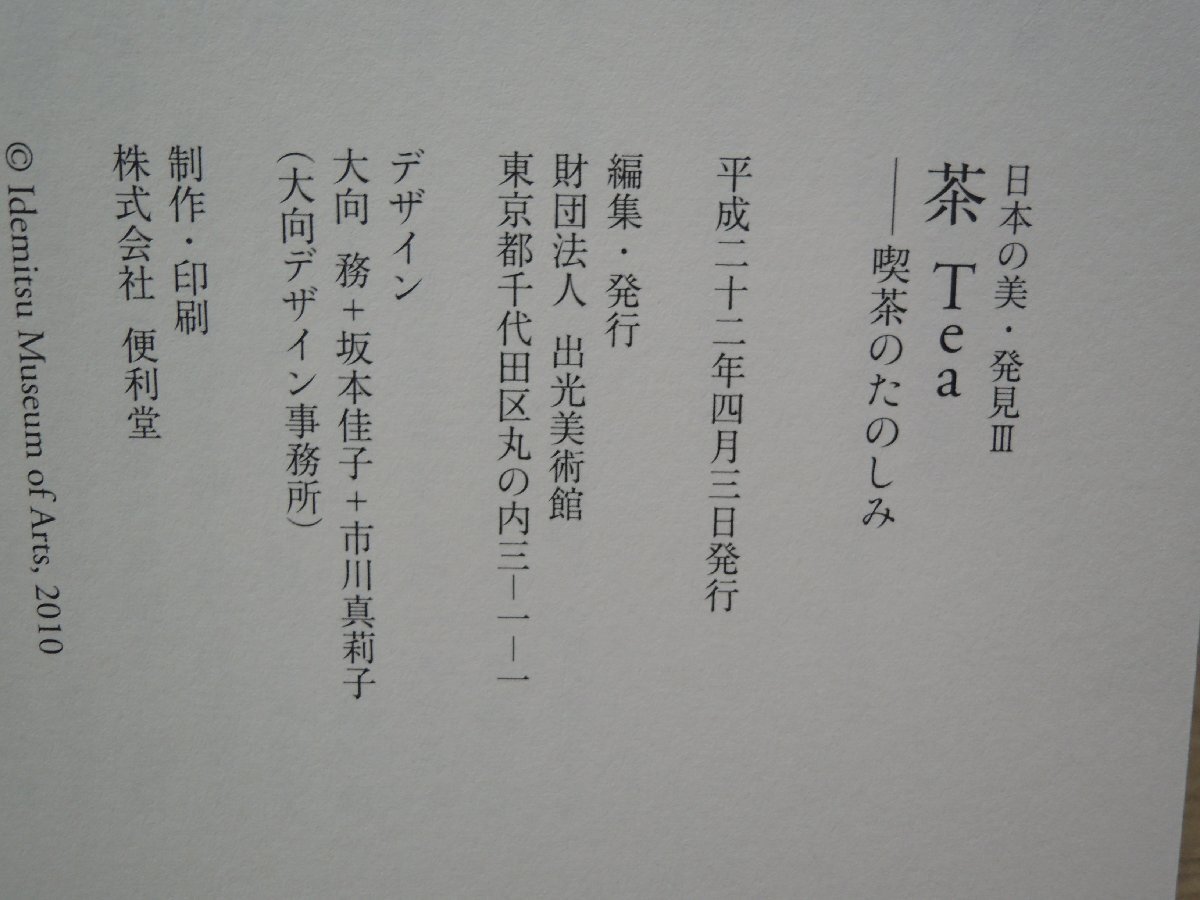 日本の美・発見Ⅲ
茶 Tea
——喫茶のたのしみ
平成二十二年四月三日発行
編集・発行
財団法人 出光美術館
東京都千代田区丸の内三－一－一
デザイン
大向 務+坂本佳子+市川真莉子
(大向デザイン事務所)
制作・印刷
株式会社 便利堂
© Idemitsu Museum of Arts, 2010